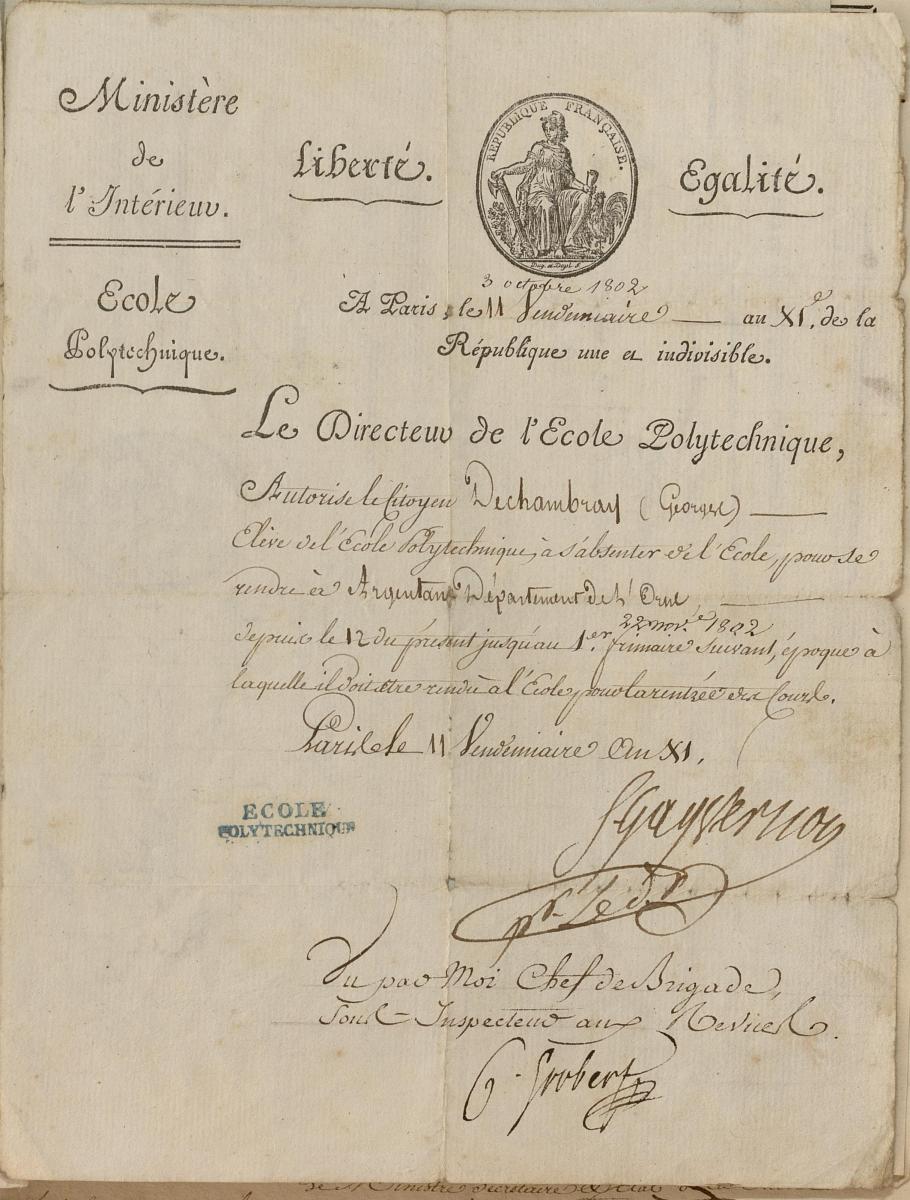 Ministère
de
l'Intérieur.
Ecole
Polytechnique.
Liberté.
REPUBLIQUE FRANÇAISE.
Egalité.
3 octobre 1802
A Paris, le 11 Vendemiaire — au XI.e de la
République une et indivisible.
Le Directeur de l'Ecole Polytechnique,
Autorise le Citoyen Dechambray (Georges) —
Elève de l'Ecole Polytechnique, à s'absenter de l'Ecole, pour se
rendre à Argentan Département de l'Orne —
22 nov.e 1802
depuis le 12 du présent jusqu'au 1.er frimaire suivant, époque à
laquelle il doit être rendu à l'Ecole pour la rentrée des Cours.
Paris le 11 Vendemiaire An XI.
ECOLE
POLYTECHNIQUE
SGayvernon
pr. le dr
Vu par Moi Chef de Brigade,
Sous-Inspecteur aux Revues.
G. Grobert